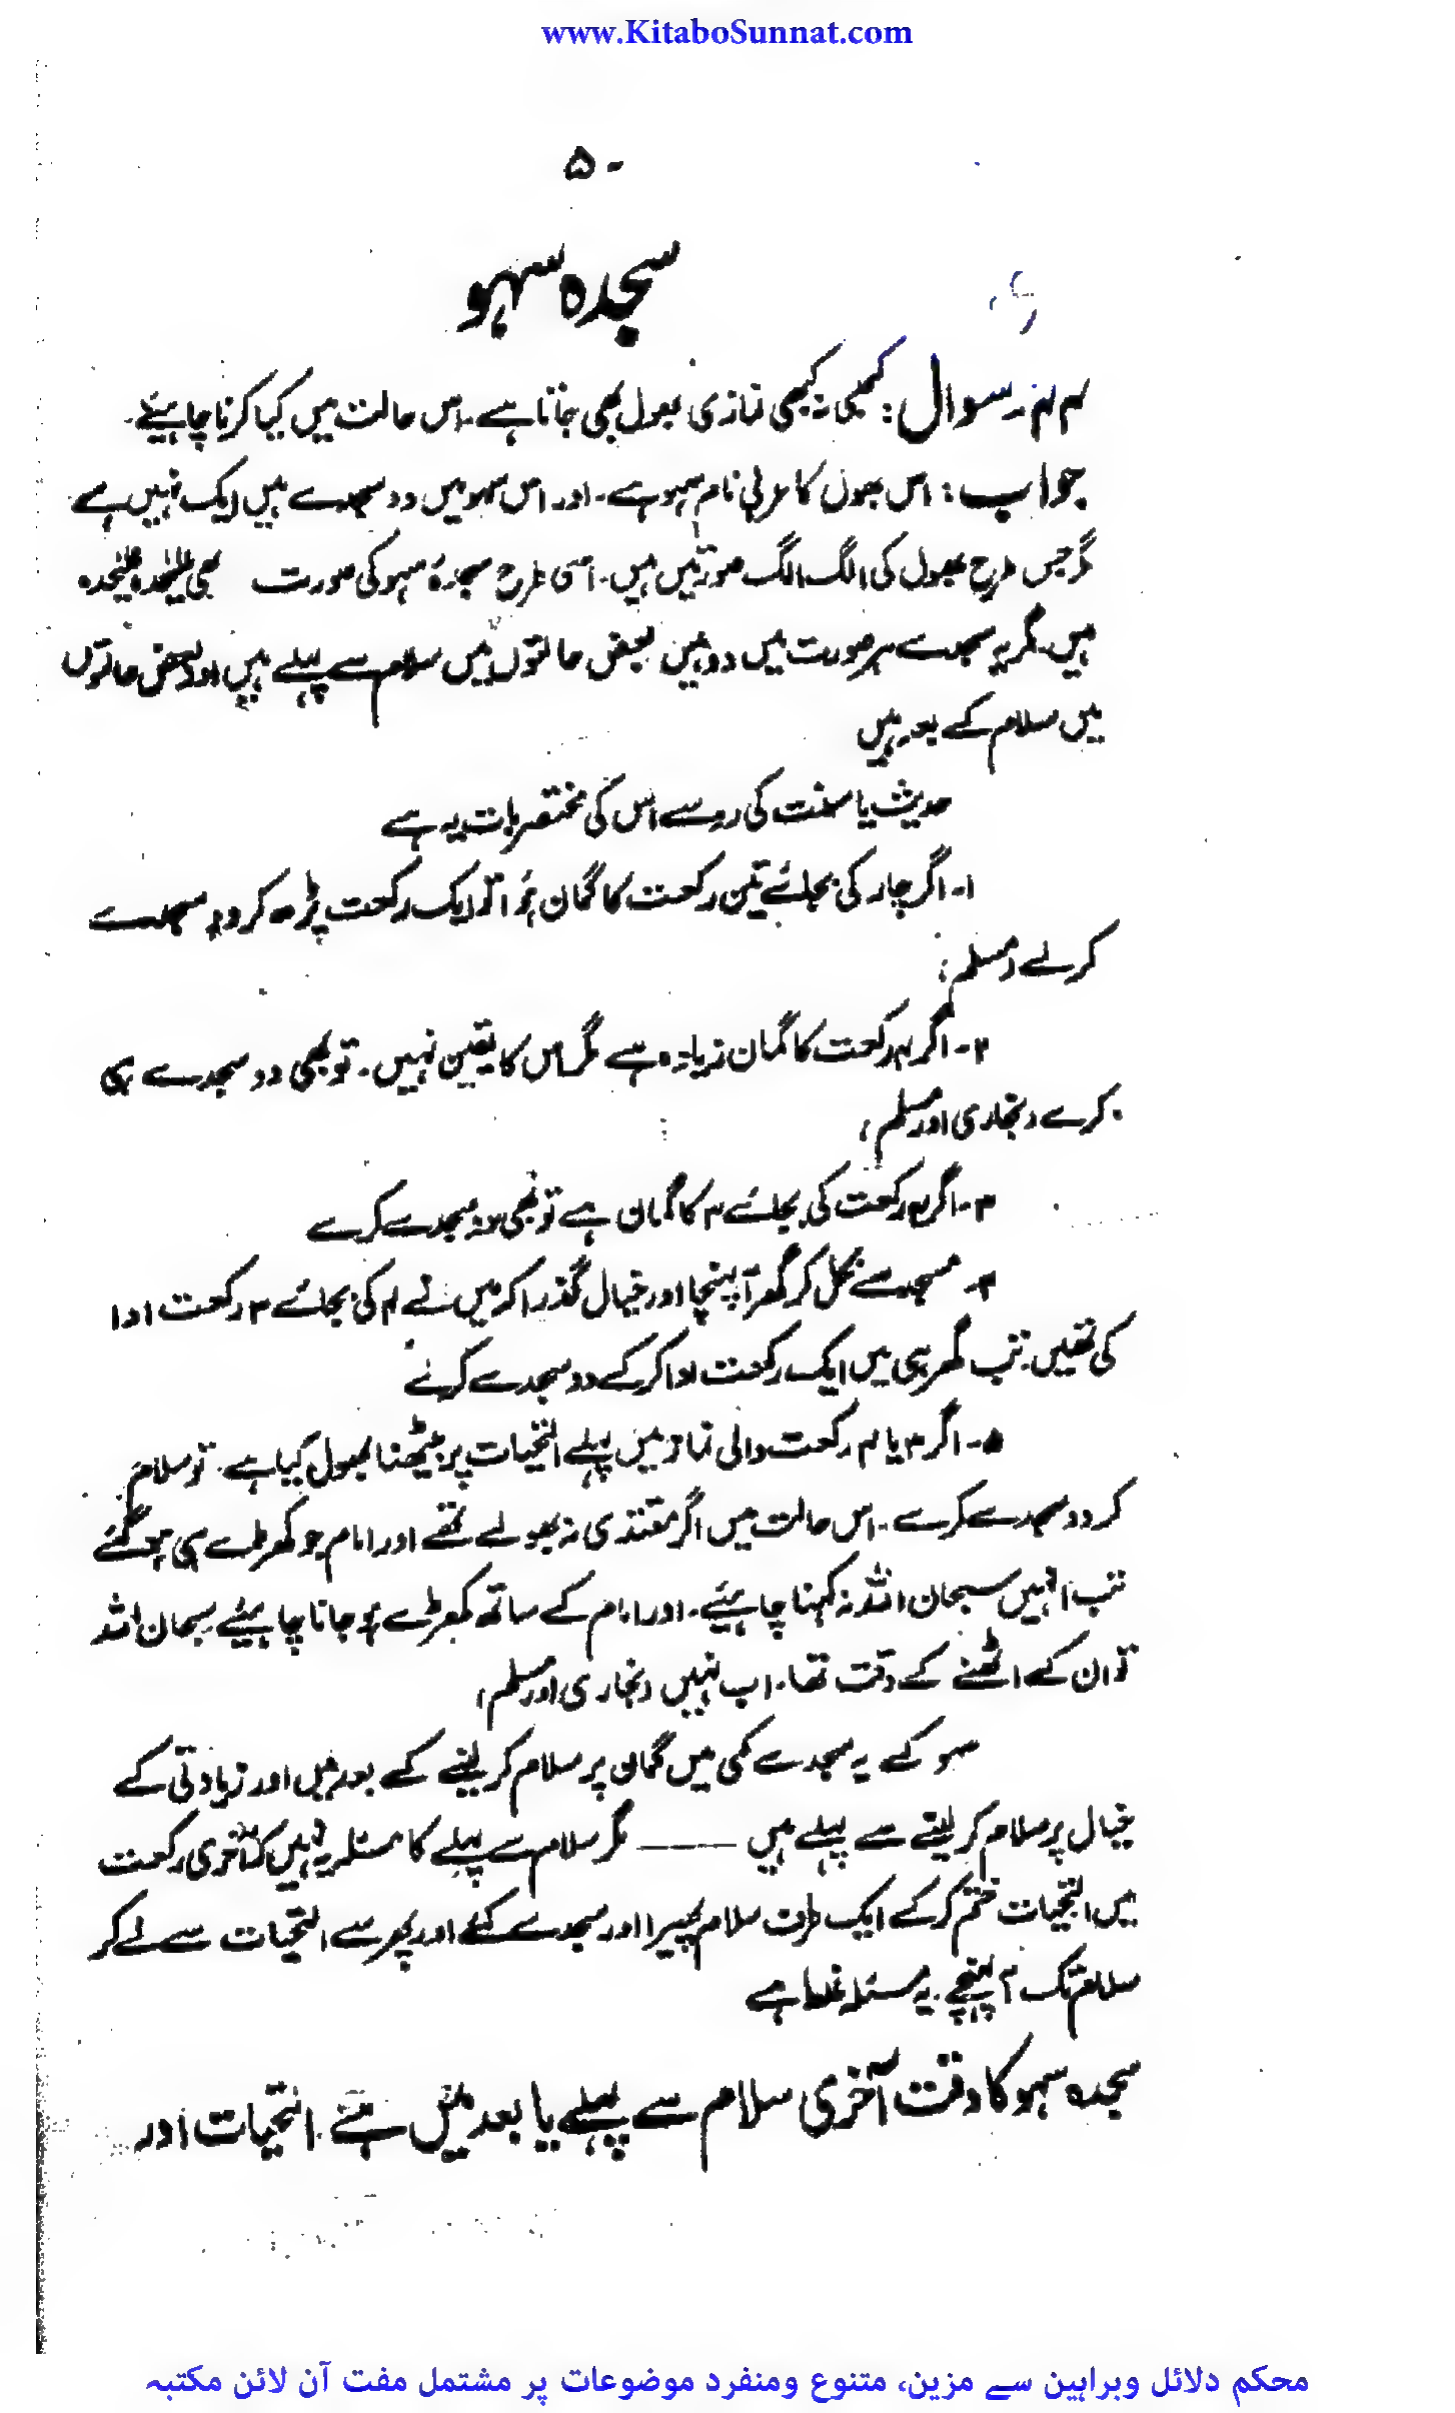 www.KitaboSunnat.com
۵۰
سجدہ سہو
۴۴۔ سوال: کبھی نہ کبھی نمازی بھول بھی جاتا ہے۔ اس حالت میں کیا کرنا چاہیئے۔
جواب: اس بھول کا عربی نام سہو ہے۔ اور اس سہو میں دو سجدے ہیں ایک نہیں ہے
مگر جس طرح بھول کی الگ الگ صورتیں ہیں۔ اسی طرح سجدۂ سہو کی صورت بھی علیٰحدہ علیٰحدہ
ہیں۔ مگر یہ سجدے ہر صورت میں دو ہیں بعض حالتوں میں سلام سے پہلے ہیں اور بعض حالتوں
میں سلام کے بعد ہیں
حدیث یا سنت کی رو سے اس کی مختصر بات یہ ہے
۱۔ اگر چار کی بجائے تین رکعت کا گمان ہُوا تو ایک رکعت پڑھ کر دو سجدے
کر لے (مسلم)
۲۔ اگر ۴ رکعت کا گمان زیادہ ہے مگر اس کا یقین نہیں۔ تو بھی دو سجدے ہی
کرے (بخاری اور مسلم)
۳۔ اگر ۴ رکعت کی بجائے ۳ کا گمان ہے تو بھی دو سجدے کرے
۴۔ مسجد سے نکل کر گھر آ پہنچا اور خیال گذرا کہ میں نے ۴ کی بجائے ۳ رکعت ادا
کی تھیں۔ تب گھر ہی میں ایک رکعت ادا کر کے دو سجدے کرلے
۵۔ اگر ۳ یا ۴ رکعت والی نماز میں پہلے التحیات پر بیٹھنا بھول گیا ہے۔ تو سلام
کر دو سجدے کرے۔ اس حالت میں اگر مقتدی نہ بھولے تھے اور امام جو کھڑے ہی ہو گئے
تب انہیں سبحان اللہ نہ کہنا چاہیئے۔ اور امام کے ساتھ کھڑے ہو جانا چاہیئے سبحان اللہ
تو ان کے اٹھنے کے وقت تھا۔ اب نہیں (بخاری اور مسلم)
سہو کے یہ سجدے کمی میں گمان پر سلام کر لینے کے بعد ہیں اور زیادتی کے
خیال پر سلام کر لینے سے پہلے ہیں ——— مگر سلام سے پہلے کا مسئلہ یہ نہیں کہ آخری رکعت
میں التحیات ختم کر کے ایک طرف سلام پھیرا اور سجدے کئے اور پھر سے التحیات سے لے کر
سلام تک آ پہنچے۔ یہ مسئلہ غلط ہے
سجدہ سہو کا وقت آخری سلام سے پہلے یا بعد میں ہے۔ التحیات اور
محکم دلائل وبراہین سے مزین، متنوع ومنفرد موضوعات پر مشتمل مفت آن لائن مکتبہ